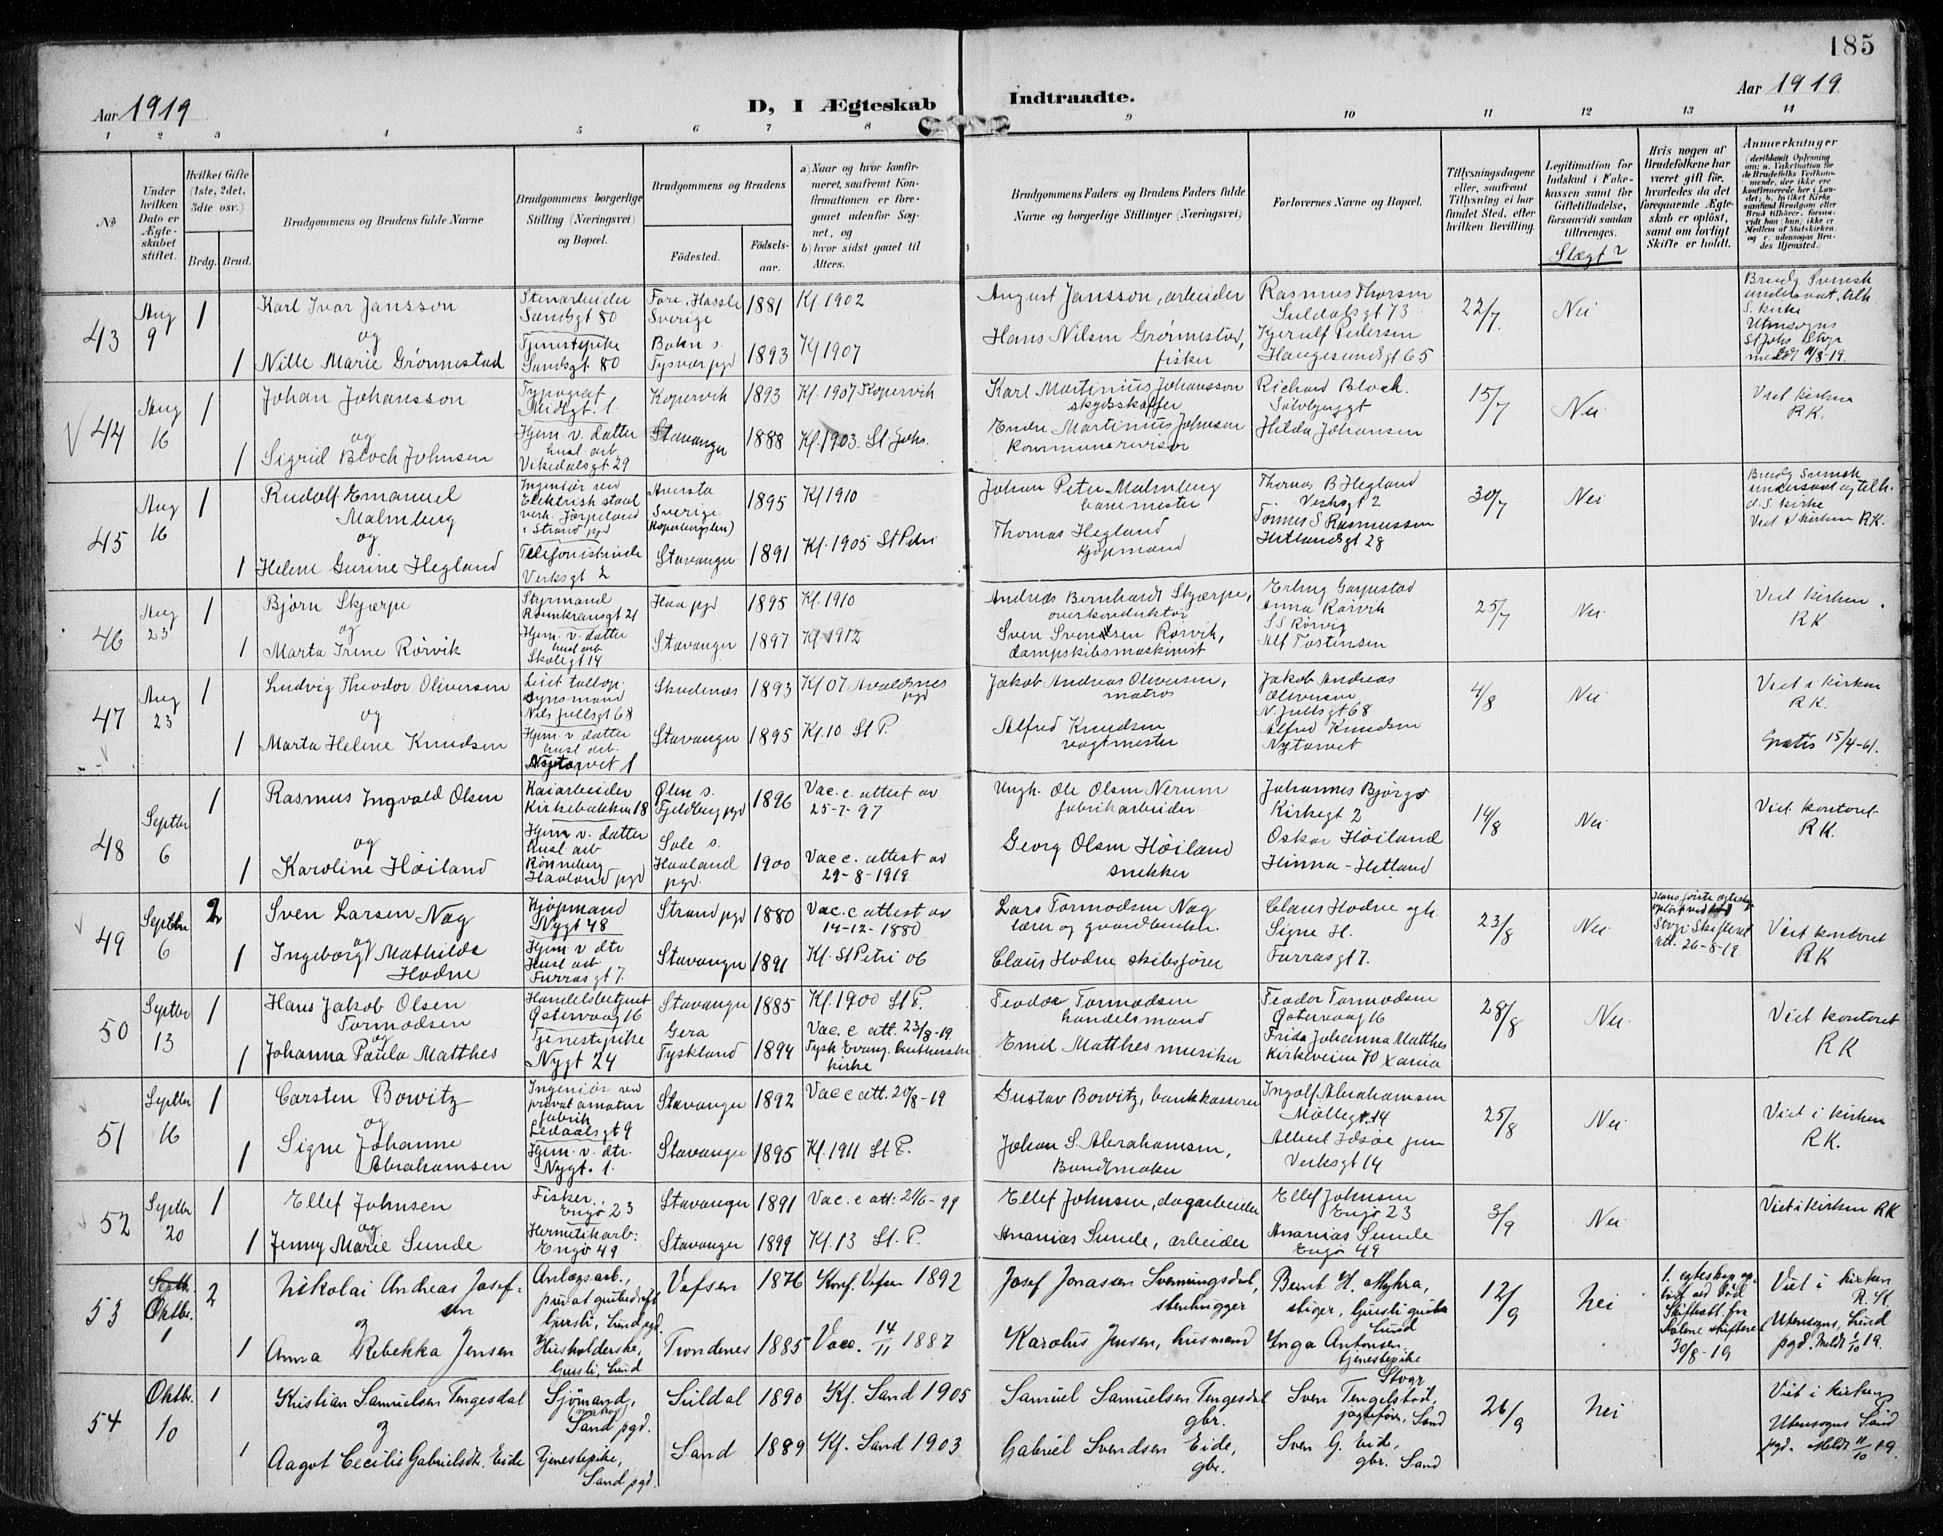 185
Aar 1919
D, I Ægteskab Indtraadte.
Aar 1919
1 2 3 4 5 6 7 8 9 10 11 12 13 14
No
Under hvilken Dato er Ægteskabet stiftet.
Hvilket Gifte (1ste, 2det, 3die osv.)
Brdg. Brud.
Brudgommens og Brudens fulde Navne
Brudgommens borgerlige Stilling (Næringsvei) og Bopæl.
Brudgommens og Brudens
Fødested.
Fødselsaar.
a) Naar og hvor konfirmeret, saafremt Konfirmationen er foregaaet udenfor Sognet, og
b) hvor sidst gaaet til Alters.
Brudgommens Faders og Brudens Faders fulde Navne og borgerlige Stillinger (Næringsvei)
Forlovernes Navne og Bopæl.
Tillysningsdagene eller, saafremt Tillysning ei har fundet Sted, efter hvilken Bevilling.
Legitimation for Indskud i Enkekassen samt for Giftetilladelse, forsaavidt saadan tiltrænges.
Slægt?
Hvis nogen af Brudefolkene har været gift før, hvorledes da det foregaaende Ægteskab er opløst, samt om lovligt Skifte er holdt.
Anmerkninger
43
Aug 9
1
Karl Ivar Jansson
og
1 Nille Marie Grønnestad
Stenarbeider
Sandsgt 80
Tjenestepike
Sandsgt 80
Fore, Hassle
Sverige
Bokn s.
Tysvær pgd
1881
1893
Kf. 1902
Kf 1907
August Jansson, arbeider
Hans Nilsen Grønnestad,
fisker
Rasmus Thorsen
Suldalsgt 73
Kjerulf Pedersen
Haugesundsgt 65
22/7
Nei
Brudg svensk
undersaat, tilh.
S. kirke
Utensogns
St Johs
meldt 11/8-19.
44
Aug 16
1
Johan Johansson
og
1 Sigrid Bloch Johnsen
Typograf
Midtgt. 1.
Hjem. v. datter
husl arb
Vikedalsgt 29
Kopervik
Stavanger
1893
1888
Kf. 1907 Kopervik
Kf. 1903. St Johs.
Karl Martinius Johansson
skydsskaffer
Endre Martinius Johnsen
Kommunerevisor
Richard Bloch.
Sølvbyggt
Hilda Johansen
15/7
Nei
Viet kirken
RK.
45
Aug 16
1
Rudolf Emanuel
Malmberg
og
1 Helene Gurine Hegland
Ingeniør ved
Elektrisk staal
verk. Jørpeland
i Strand pgd
Telefonistinde
Verksgt 2
Avesta
Sverige
(Kopparbergslen)
Stavanger
1895
1891
Kf 1910
Kf. 1905 St Petri
Johan Peter Malmberg
banemester
Thomas Hegland
Kjøpmand
Thomas B Hegland
Verksgt 2
Tønnes S Rasmussen
Hetlandsgt 28
30/7
Nei
Brudg svensk
undersaat og tilh.
d. S. kirke
Viet i kirken RK.
46
Aug 23
1
Bjørn Skjærpe
og
1 Marta Irene Rørvik
Styrmand
Rosenkransgt 21
Hjem. v. datter
husl arb
Skolegt 14
Haa pgd
Stavanger
1895
1897
Kf. 1910
Kf 1912
Andreas Bernhardt Skjærpe,
overkonduktør
Sven Svendsen Rørvik,
dampskibsmaskinist
Erling Gaspestad
Anna Rørvik
S S Rørvig
Alf Tostensen
25/7
Nei
Viet kirken.
RK
47
Aug 23
1
Ludvig Theodor Oliversen
og
1 Marta Helene Knudsen
Nils Juelsgt 68
Hjem. v datter
husl arb.
Nytorvet 1
Skudenes
Stavanger
1893
1895
Kf 07 Avaldsnes
pgd
Kf. 10 St P.
Jakob Andreas Oliversen,
matros
Alfred Knudsen
vagtmester
Jakob Andreas
Oliversen
N. Juelsgt 68
Alfred Knudsen
Nytorvet
4/8
Nei
Viet i kirken
RK.
Gratis 15/4-61.
48
Septbr
6
1
Rasmus Ingvald Olsen
og
1 Karoline Høiland
Kaiarbeider
Kirkebakken 18
Hjem v. datter
Husl arb
Haaland pgd
Ølen s.
Fjeldberg pgd
Sole s.
Haaland
pgd.
1896
1900
Vac. c. attest av
25-7-97
Vac c. attest av
29-8-1919
Ungk. Ole Olsen Nerum
fabrikarbeider
Georg Olsen Høiland
snekker
Johannes Bjørgo
Kirkegt 2
Oskar Høiland
Hinna - Hetland
14/8
Nei
Viet kontoret
RK.
49
Septbr
6
2
Sven Larsen Nag
og
1 Ingeborg Mathilde
Hodne
Kjøpmand
Nygt 48
Hjem v. dtr
Husl arb
Furrasgt 7.
Strand pgd
Stavanger
1880
1891
Vac. c attest av
14-12-1880
Kf. St Petri 06
Lars Tormodsen Nag
lærer og gaardbruker.
Claus Hodne skibsfører
Claus Hodne og h.
Signe H.
Furrasgt 7.
23/8
Nei
Hans første egteskap
opløst ved død
Skifteret
att. 26-8-19.
Viet kontoret
RK
50
Septbr
13
1
Hans Jakob Olsen
Tormodsen
og
1 Johanna Paula Matthes
Handelsbetjent
Østervaag 16
Tjenestepike
Nygt 24
Stavanger
Gera
Tyskland
1885
1894
Kf. 1900 St P.
Vac. c att. 23/8-19
Tysk Evang. Luthenske
kirke
Teodor Tormodsen
handelsmand
Emil Matthes musiker
Teodor Tormodsen
Østervaag 16
Frida Johanna Matthes
Kirkeveien 70 Xania
28/8
Nei
Viet kontoret
RK
51
Septbr
16
1
Carsten Bowitz
og
1 Signe Johanne
Abrahamsen
Ingeniør ved
privat amatur
fabrik
Ledaalsgt 9
Hjem. v. dtr.
Nygt. 1.
Stavanger
Stavanger
1892
1895
Vac c att. 20/8-19
Kf. 1911 St P.
Gustav Bowitz, bankkasserer
Johan S. Abrahamsen,
Bundtmaker
Ingolf Abrahamsen
Møllegt. 14
Albert Idsøe jun
Verksgt 14
25/8
Nei
Viet i kirken
RK.
52
Septbr
20
1
Ellef Johnsen
og
1 Jenny Marie Sunde
Fisker.
Engø 23
Hermetikarb:
Engø 49
Stavanger
Stavanger
1891
1899
Vac. c att: 21/6-99
Kf. 13 St. P.
Ellef Johnsen, dagarbeider
Ananias Sunde, arbeider
Ellef Johnsen
Engø 23
Ananias Sunde
Engø 49
3/9
Nei
Viet i kirken RK
53
Septb.
Oktbr.
1
2
Nikolai Andreas Josefsen
og
1 Anna Rebekka Jensen
Anlægsarb.,
privat grubedrift
Gursli, Lund pgd.
Husholderske,
Gursli, Lund
Vefsen
Trondenes
1876
1885
Konf. Vefsen 1892
Vacc. 14/11 1887
Josef Jonassen Svenningsdal,
stenhugger
Karolus Jensen, husmand
Bernt H. Myhra,
stiger, Gursli gruber
Lund
Inga Antonsen
tjenestepike
12/9
Nei
1. egteskap opløst
ved død
Skifteatt. fra
skifteret
30/8-19
Viet i kirken
R. K.
Utensogns, Lund
pgd. Meldt 1/10 19.
54
Oktbr.
10
1
Kristian Samuelsen Tengesdal
og
1 Aagot Cecilie Gabrielsdtr. Eide
Sjømand,
matros
Sand pgd.
Tjenestepike,
Sand pgd.
Suldal
Sand
1890
1889
Kf. Sand 1905
Kf. Sand 1903
Samuel Samuelsen Tengesdal
gbr.
Gabriel Svendsen Eide,
gbr.
Sven Tengelsdal,
jagtefører, Sand
Sven G. Eide,
gbr. Sand
26/9
Nei
Viet i kirken
Utensogns Sand
pgd. Meldt 11/10 19.